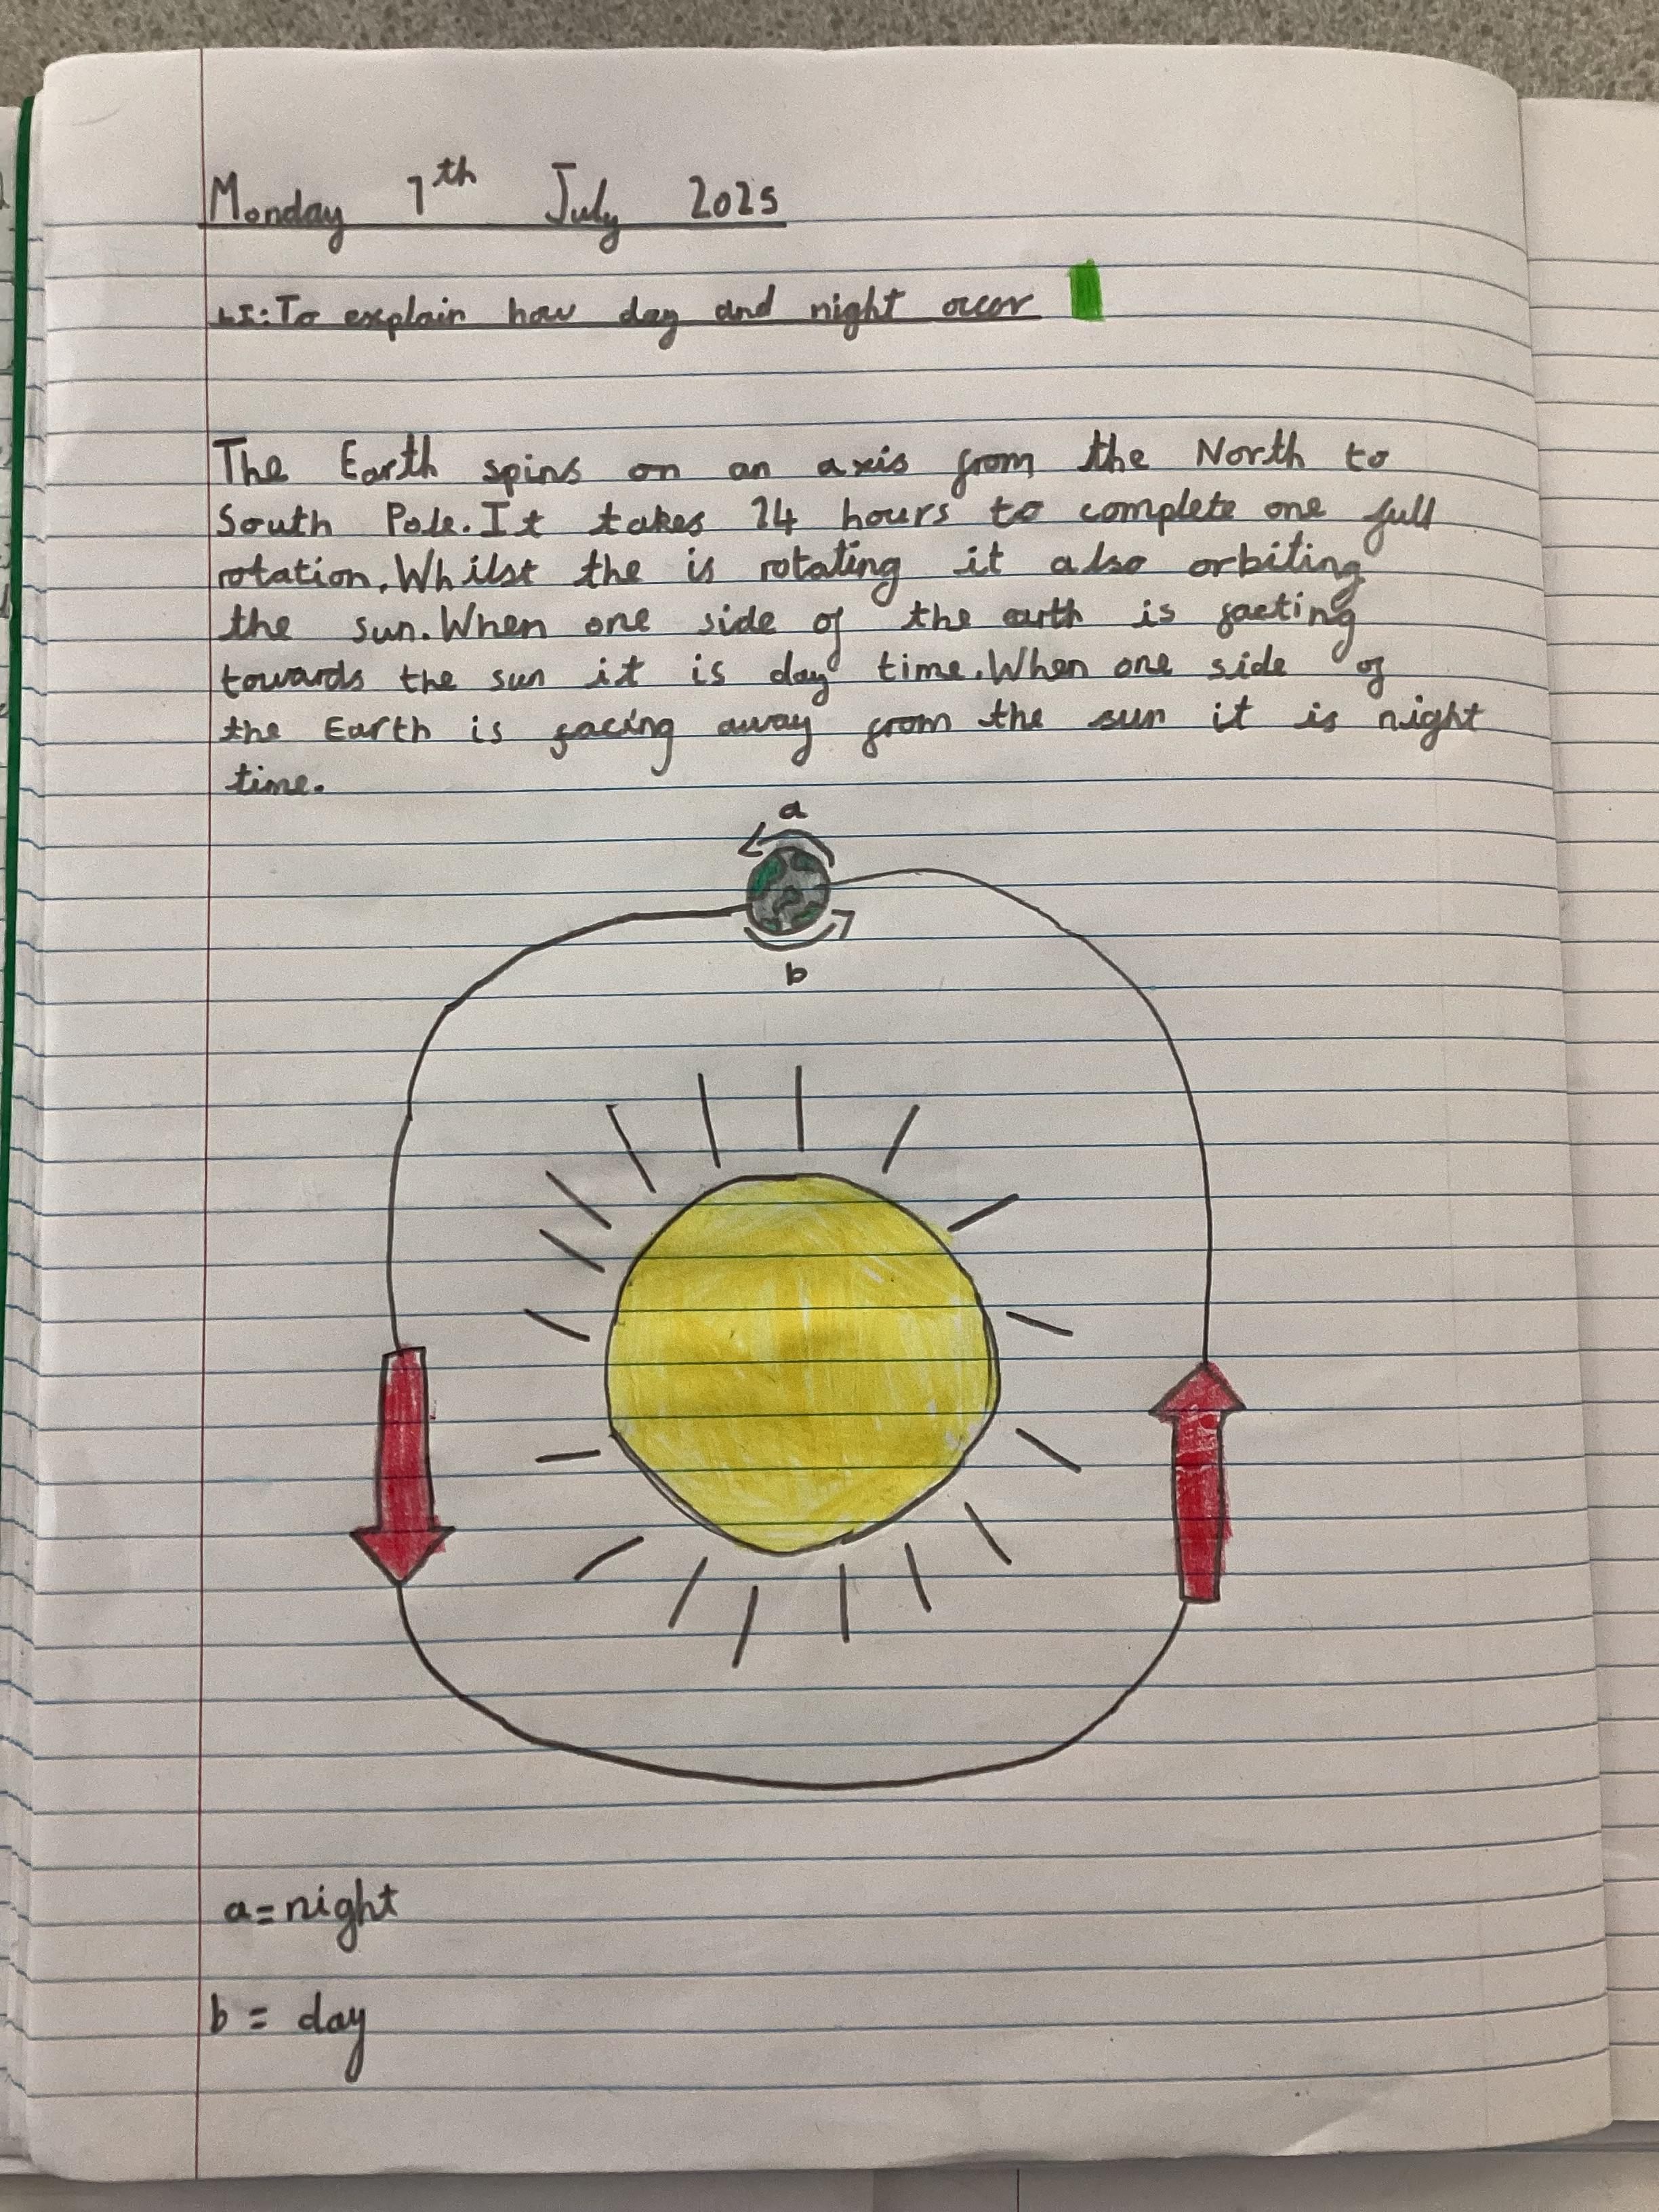 Monday 7th July 2025
LI: To explain how day and night occor
The Earth spins on an axis from the North to
South Pole. It takes 24 hours to complete one full
rotation. Whilst the is rotating it also orbiting
the sun. When one side of the earth is facting
towards the sun it is day time. When one side of
the Earth is facing away from the sun it is night
time.
a
b
a = night
b = day